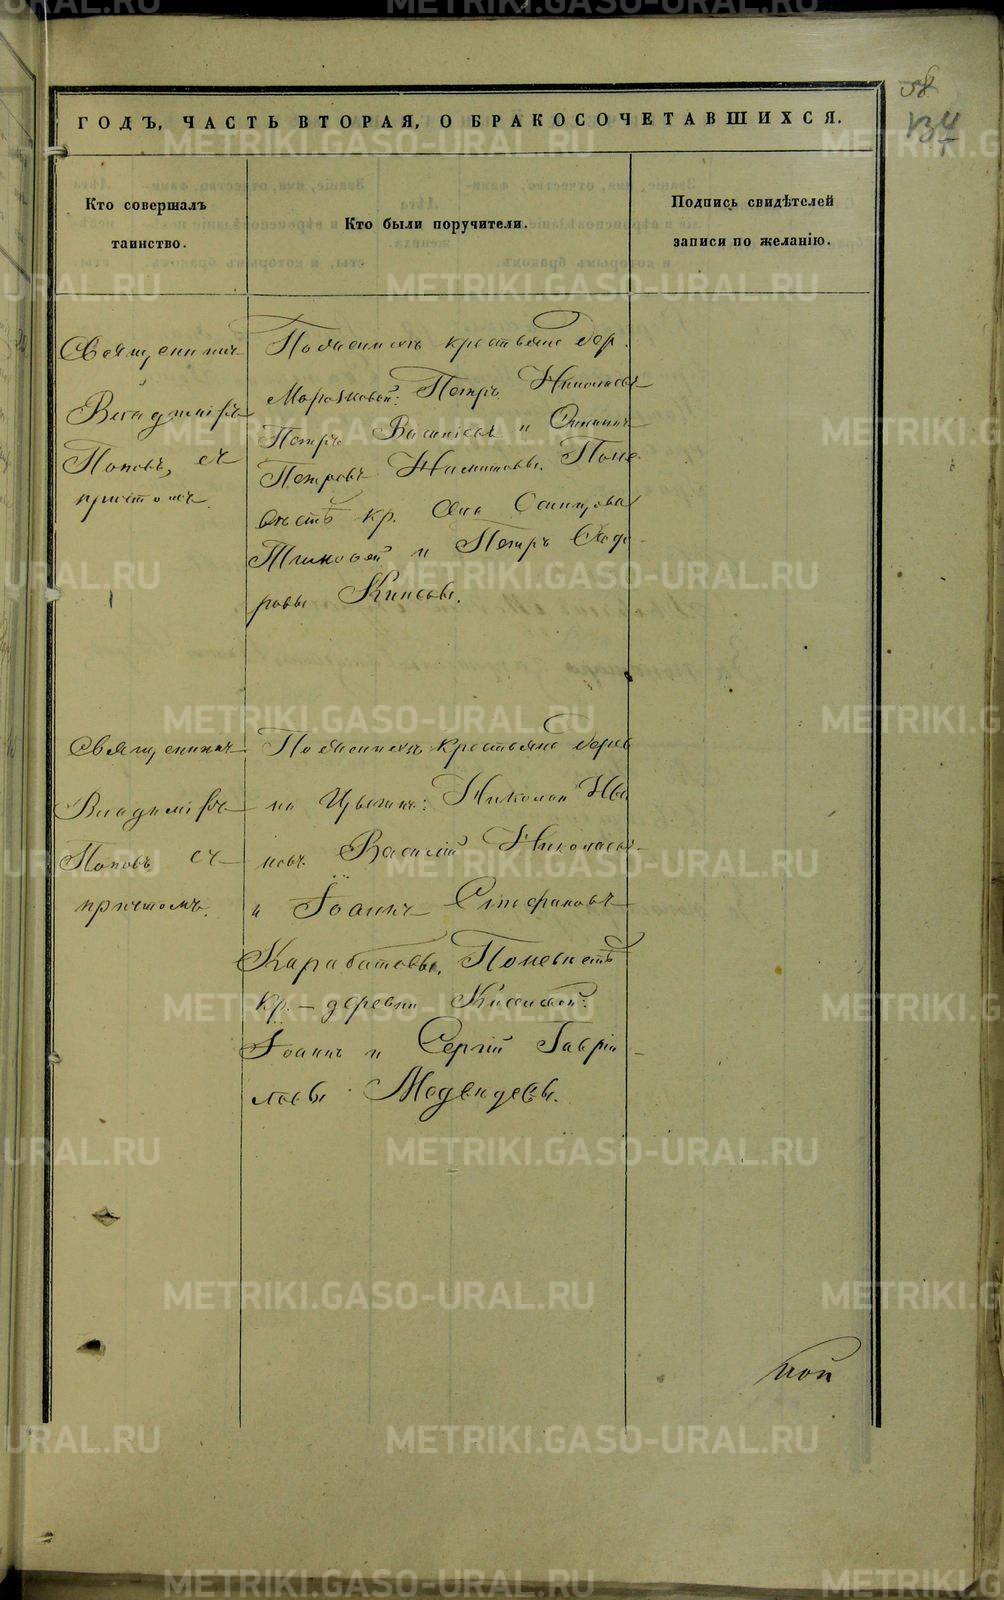 58
134
ГОДЪ, ЧАСТЬ ВТОРАЯ, О БРАКОСОЧЕТАВШИХСЯ.
Кто совершалъ
таинство.
Кто были поручители.
Подпись свидѣтелей
записи по желанію.
Священникъ
Владиміръ
Поповъ, съ
причтомъ.
По женихѣ крестьяне дер.
Петръ Николаевъ
Петръ Василіевъ и
Петровъ По не-
вѣстѣ кр.
и Петръ Ѳедо-
ровы
Священникъ
Владиміръ
Поповъ съ
причтомъ.
По женихѣ крестьяне дерев
ни Николай Ива
новъ Василій Николаевъ
и Іоаннъ Стефановъ
Карабатовы. По невѣстѣ
кр. деревни
Іоаннъ и Сергій Гаврiи
ловы Медвѣдевы.
METRIKI.GASO-URAL.RU